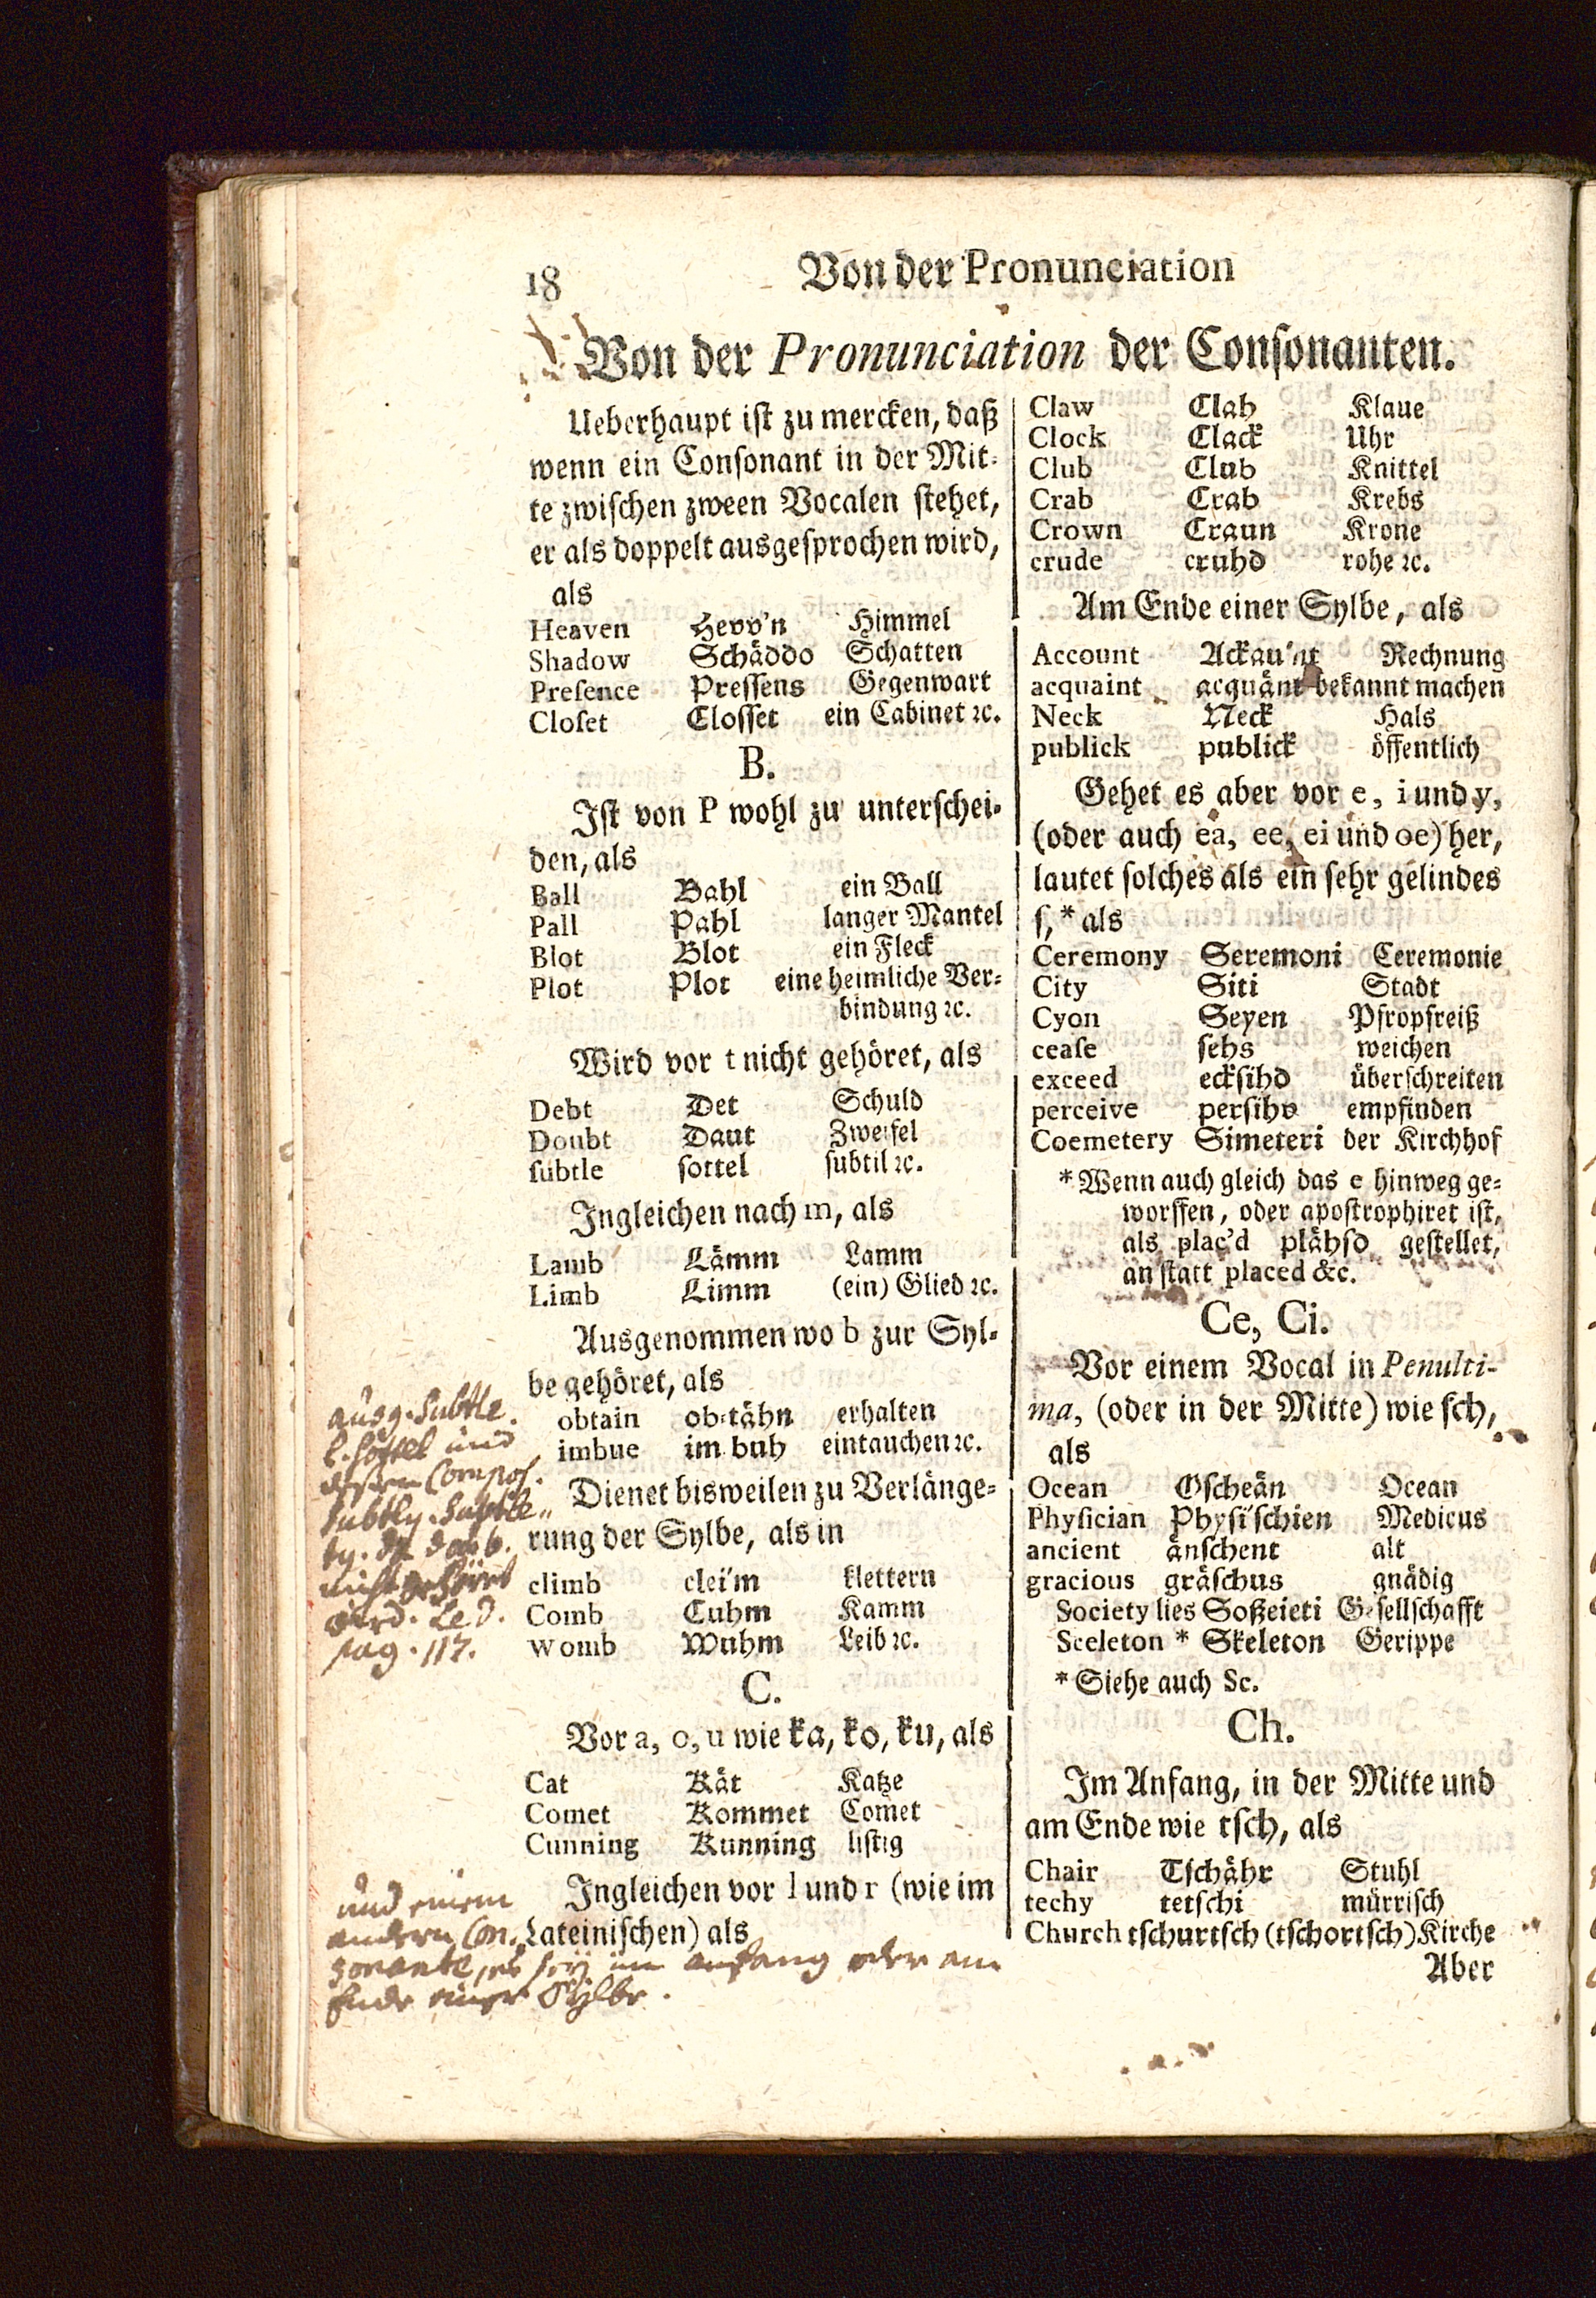 18 Von der Pronunciation
Von der Pronunciation der Conſonanten.
Ueberhaupt iſt zu mercken, daß
wenn ein Conſonant in der Mit-
te zwiſchen zween Vocalen ſtehet,
er als doppelt ausgeſprochen wird,
als
Heaven Hevv'n Himmel
Shadow Schäddo Schatten
Preſence Preſſens Gegenwart
Cloſet Cloſſet ein Cabinet ꝛc.
B.
Iſt von P wohl zu unterſchei-
den, als
Ball Bahl ein Ball
Pall Pahl langer Mantel
Blot Blot ein Fleck
Plot Plot eine heimliche Ver-
bindung ꝛc.
Wird vor t nicht gehöret, als
Debt Det Schuld
Doubt Daut Zweifel
ſubtle ſottel ſubtil ꝛc.
Ingleichen nach m, als
Lamb Lämm Lamm
Limb Limm (ein) Glied ꝛc.
Ausgenommen wo b zur Syl-
be gehöret, als
obtain ob-tähn erhalten
imbue im buh eintauchen ꝛc.
Dienet bisweilen zu Verlänge-
rung der Sylbe, als in
climb clei'm klettern
Comb Cuhm Kamm
Womb Wuhm Leib ꝛc.
C.
Vor a, o, u wie ka, ko, ku, als
Cat Kät Katze
Comet Kommet Comet
Cunning Kunning liſtig
Ingleichen vor l und r (wie im
Lateiniſchen) als
ausg. Subtle.
l. ſottel und
deſſen Compoſ.
Subtly. Subtle„
ty. da das b.
nicht gehöret
wird. Led.
pag. 117.
und einem
andern Con„
ſonante, es ſey im anfang oder am
Ende einer Sylbe.
Claw Clah Klaue
Clock Clack Uhr
Club Club Knittel
Crab Crab Krebs
Crown Craun Krone
crude cruhd rohe ꝛc.
Am Ende einer Sylbe, als
Account Ackau'nt Rechnung
acquaint acquänt bekannt machen
Neck Neck Hals
publick publick öffentlich
Gehet es aber vor e, i und y,
(oder auch ea, ee, ei und oe) her,
lautet ſolches als ein ſehr gelindes
ſ,* als
Ceremony Seremoni Ceremonie
City Siti Stadt
Cyon Seyen Pfropfreiß
ceaſe ſehs weichen
exceed eckſihd überſchreiten
perceive perſihv empfinden
Coemetery Simeteri der Kirchhof
* Wenn auch gleich das e hinweg ge-
worffen, oder apoſtrophiret iſt,
als plac'd plähſd geſtellet,
an ſtatt placed &c.
Ce, Ci.
Vor einem Vocal in Penulti-
ma, (oder in der Mitte) wie ſch,
als
Ocean Oſcheän Ocean
Phyſician Phyſi'ſchien Medicus
ancient änſchent alt
gracious gräſchus gnädig
Society lies Soßeieti Geſellſchafft
Sceleton * Skeleton Gerippe
* Siehe auch Sc.
Ch.
Im Anfang, in der Mitte und
am Ende wie tſch, als
Chair Tſchähr Stuhl
techy tetſchi mürriſch
Church tſchurtſch (tſchortſch) Kirche
Aber